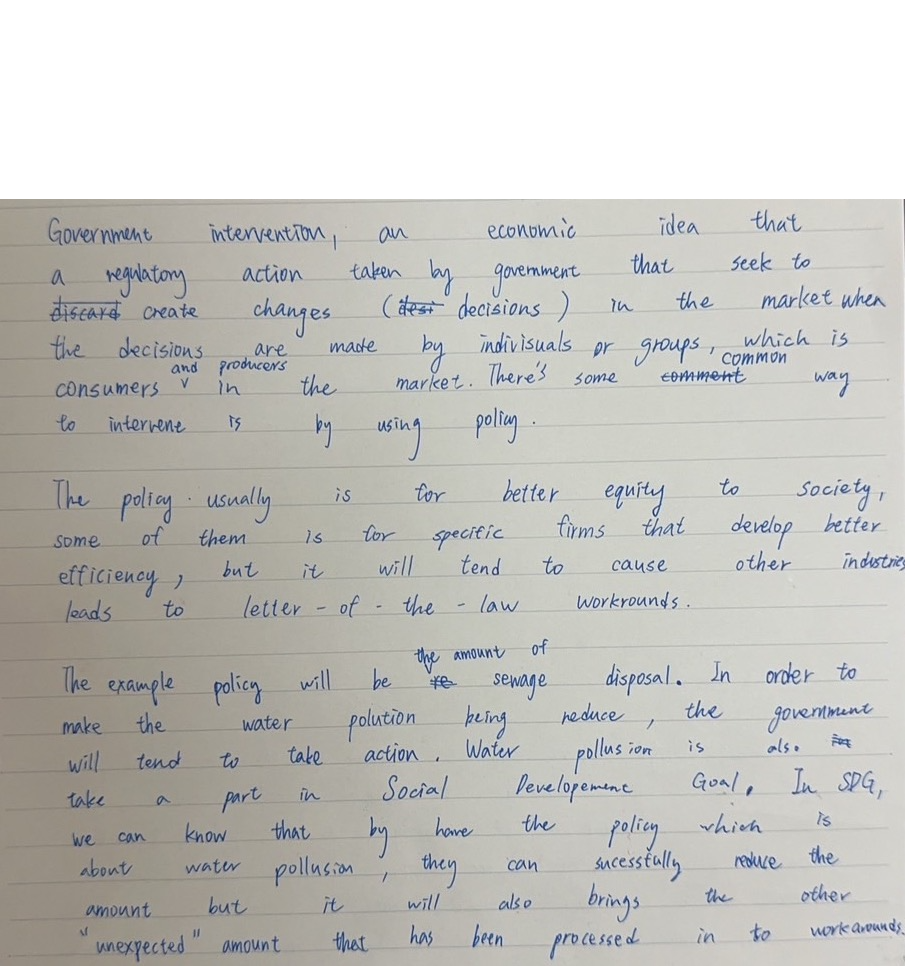 Government intervention, an economic idea that
a regulatory action taken by government that seek to
discard create changes (desi decisions) in the market when
the decisions are made by indivisuals or groups, which is
consumers and producers in the market. There's some comment common way
to intervene is by using policy.
The policy usually is for better equity to society,
some of them is for specific firms that develop better
efficiency, but it will tend to cause other industries
leads to letter-of-the-law workrounds.
The example policy will be the amount of sewage disposal. In order to
make the water polution being reduce, the government
will tend to take action. Water pollusion is als.
take a part in Social Developement Goal. In SDG,
we can know that by have the policy which is
about water pollusion, they can sucessfully reduce the
amount but it will also brings the other
"unexpected" amount that has been processed in to workarounds.